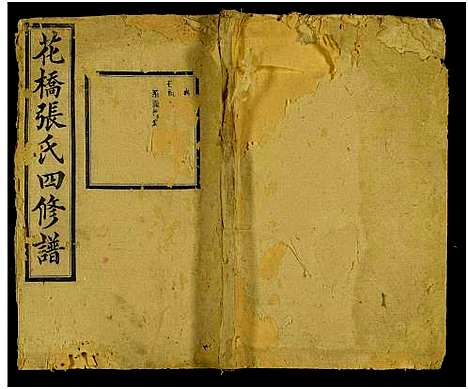 花橋張氏四修譜